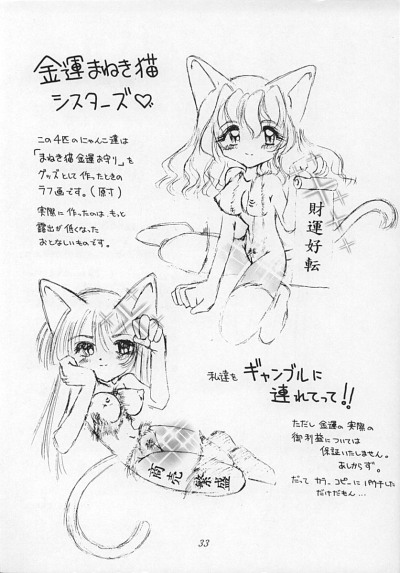 金運まねき猫
シスターズ♡
この4匹のにゃんこ達は
「まねき猫金運お守り」を
グッズとして作ったときの
ラフ画です。(原寸)
実際に作ったのは、もっと
露出が低くなった
おとなしいものです。
財運好転
私達を ギャンブルに
連れてって!!
ただし金運の実際の
御利益については
保証いたしません。
あしからず。
だってカラーコピーにパウチした
だけだもん…
商売繁盛
33